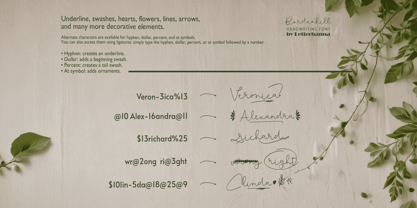 Underline, swashes, hearts, flowers, lines, arrows,
and many more decorative elements.
Barderhill
HANDWRITING FONT
by Letterhanna
Alternate characters are available for hyphen, dollar, percent, and at symbols.
You can also access them using ligatures: simply type the hyphen, dollar, percent, or at symbol followed by a number
• Hyphen: creates an underline.
• Dollar: adds a beginning swash.
• Percent: creates a tail swash.
• At symbol: adds ornaments.
Veron-3ica%13 Veronica
@10 Alex-16andra@11 Alexandra
$13richard%25 richard
wr@2ong ri@3ght wrong right
$10lin-5da@18@25@9 linda